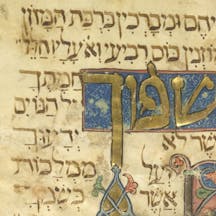 ומברכין ברכת המזון
כוס רביעי ואו עליו
שפוך חמתך
אל הגוים
אשר לא ידעוך
ועל ממלכות
אשר בשמך